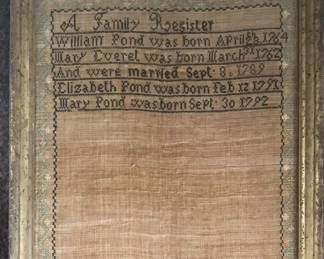 A Family Register
William Pond was born April 1764
Mary Everet was born March 31 1762
And were married Sept 8 1789
Elizabeth Pond was born Feb 12 1791
Mary Pond was born Sept 30 1792